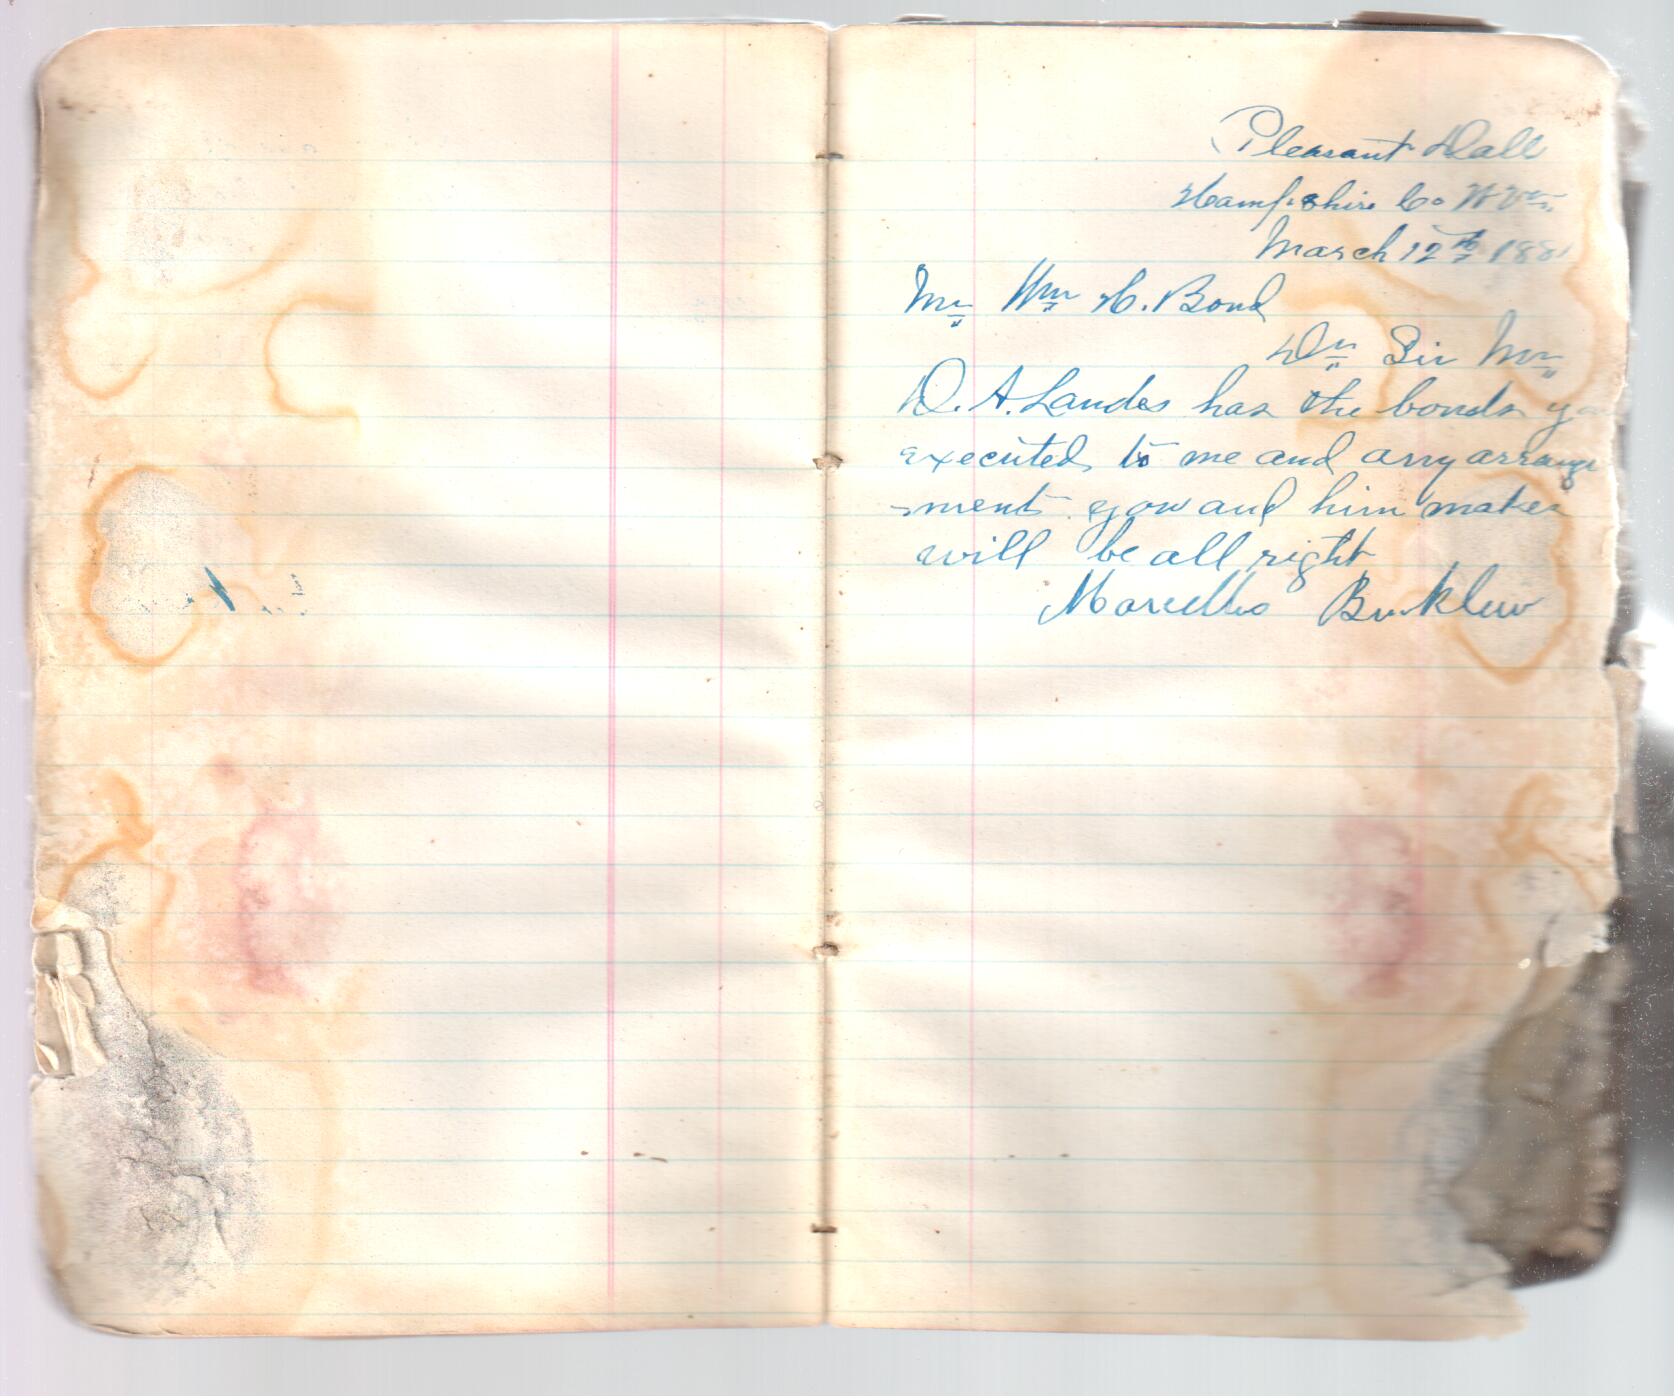 Pleasant Dale
Hampshire Co W Va
March 12th 188
Mr Wm H. Bond
Dr Sir Mr
D. A. Landes has the bonds
executed to me and any arrange
-ment you and him makes
will be all right
Marcellus Bucklew